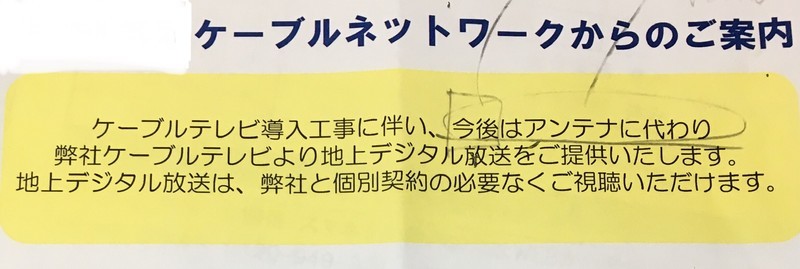 ケーブルネットワークからのご案内
ケーブルテレビ導入工事に伴い、今後はアンテナに代わり
弊社ケーブルテレビより地上デジタル放送をご提供いたします。
地上デジタル放送は、弊社と個別契約の必要なくご視聴いただけます。